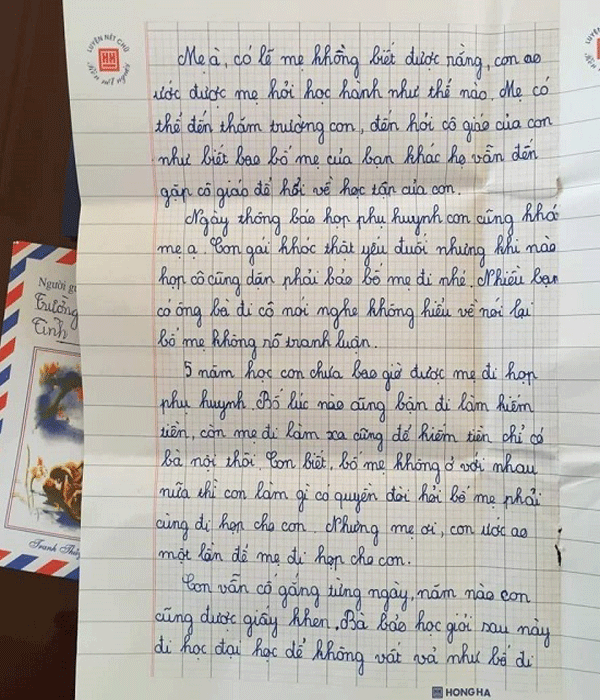 LUYỆN NÉT CHỮ
NH
RÈN NẾT NGƯỜI
Mẹ à, có lẽ mẹ không biết được rằng, con ao
ước được mẹ hỏi học hành như thế nào. Mẹ có
thể đến thăm trường con, đến hỏi cô giáo của con
như biết bao bố mẹ của bạn khác họ vẫn đến
gặp cô giáo để hỏi về học tập của con.
Ngày thông báo họp phụ huynh con cũng khó
mẹ ạ. Con gái khóc thật yếu đuối nhưng khi nào
họp cô cũng dặn phải bảo bố mẹ đi nhé. Nhiều bạn
có ông bà đi cô nói nghe không hiểu về nói lại
bố mẹ không rõ tranh luận.
5 năm học con chưa bao giờ được mẹ đi họp
phụ huynh. Bố lúc nào cũng bận đi làm kiếm
tiền, còn mẹ đi làm xa cũng để kiếm tiền chỉ có
bà nội thôi. Con biết, bố mẹ không ở với nhau
nữa thì con làm gì có quyền đòi hỏi bố mẹ phải
cùng đi họp cho con. Nhưng mẹ ơi, con ước ao
một lần để mẹ đi họp cho con.
Con vẫn cố gắng từng ngày, năm nào con
cũng được giấy khen. Bà bảo học giỏi sau này
đi học đại học để không vất vả như bố đi
HONG HA
Người g
Trường
Tình
Tranh Thê